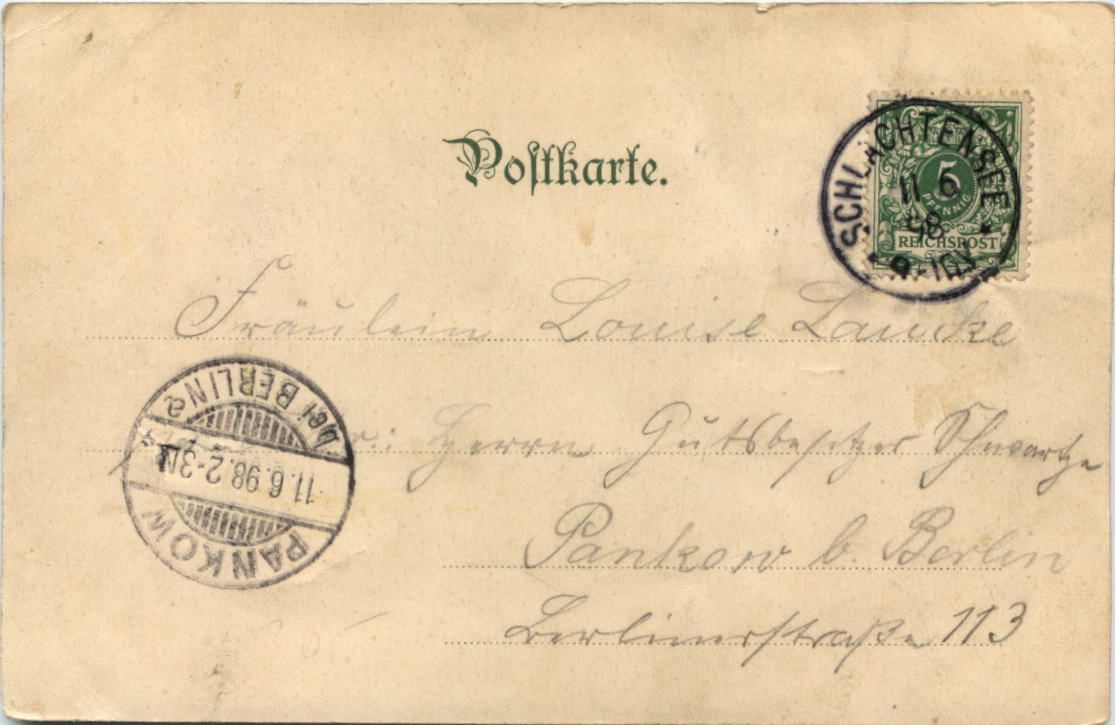 Postkarte.
SCHLACHTENSEE
11 6
98
9-10V
5
PFENNIG
REICHSPOST
Fräulein Louise Lamcke
Herrn Gutsbesitzer Schwartze
Pankow b. Berlin
Berlinerstraße 113
PANKOW
11.6.98.2-3N
bei BERLIN